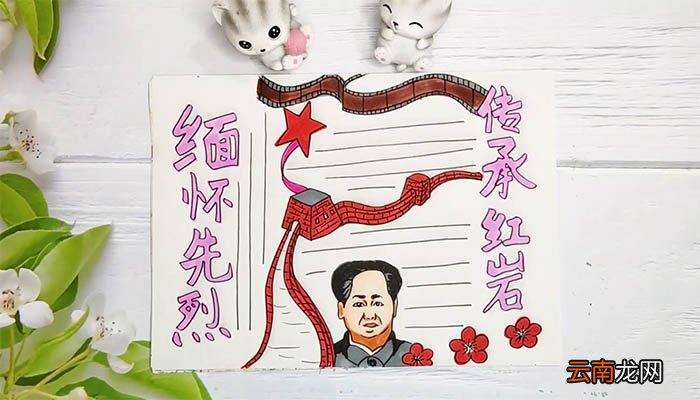 缅怀先烈
传承红岩
云南龙网